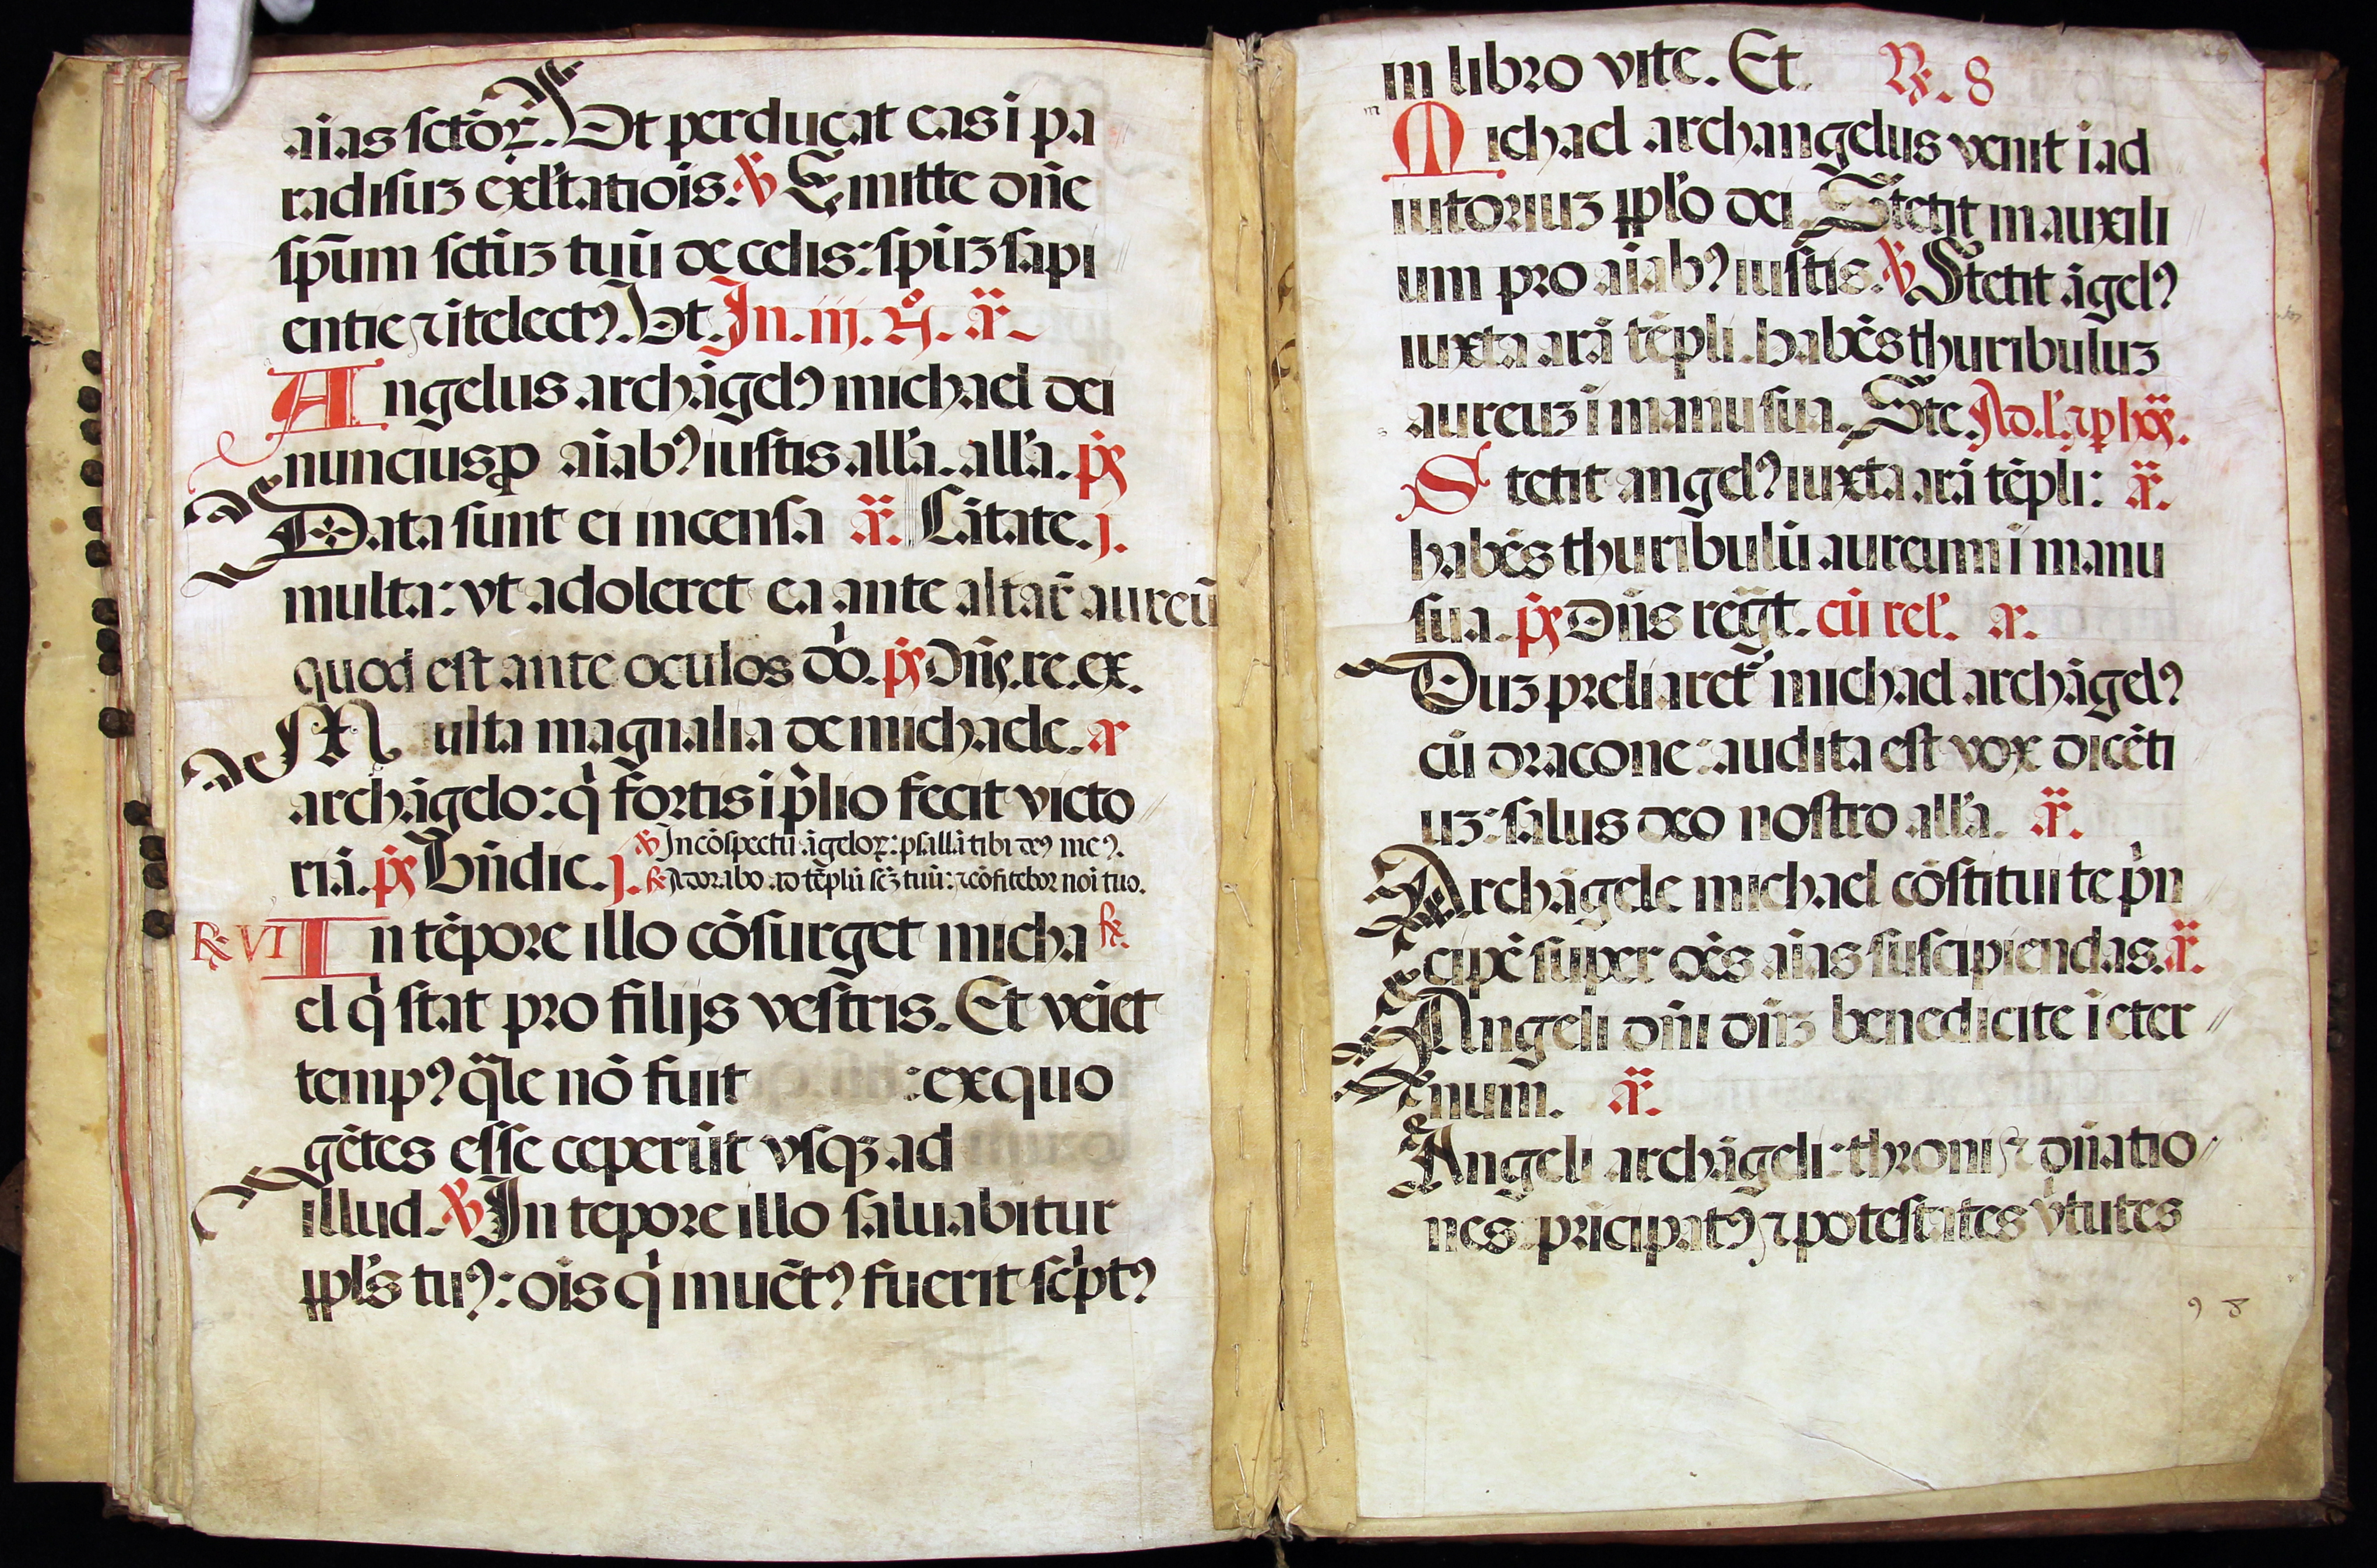 aias sctōꝝ. Vt perducat eas ī pa
radisuꝫ exl'tatiōis. ℣ Emitte dn̄e
spūm sctūꝫ tuū de celis: spūꝫ sapi
entie ⁊ ītelectꝰ. Vt. In. iij. N̊. ā.
Angelus archāgelꝰ michael dei
nuncius ꝓ aīabꝰ iustis all'a. all'a. p̄s
Data sunt ei incensa ā. Cātate. j.
multa: vt adoleret ea ante altar̄ aureū
quod est ante oculos dō. p̄s Dn̄s. re. ex.
Multa magnalia de michaele. a
archāgelo: q̇ fortis ī p̄lio fecit victo
riā. p̄s Bn̄dic. j. ℣ In cōspectu āgeloꝝ: psallā tibi deꝰ meꝰ.
℟ Adorabo ad tēplū scꝫ tuū: ⁊ cōfitebor noī tuo.
℟ VI In tēpore illo cōsurget micha ℟
el q̇ stat pro filijs vestris. Et veīet
tempꝰ q̄le nō fuit : ex quo
gētes esse ceperūt vsqꝫ ad
illud. ℣ In tepore illo saluabitur
ppl's tuꝰ: oīs q̇ inuētꝰ fuerit scͥptꝰ
in libro vite. Et. ℟. 8
Michael archangelus venit ī ad
iutoriuꝫ ppl'o dei. Stetit in auxili
um pro aīabꝰ iustis. ℣ Stetit āgelꝰ
iuxta arā tēpli. habēs thuribuluꝫ
aureuꝫ ī manu sua. Ste. Ad. l'. ⁊ p hōs.
Stetit angelꝰ iuxta arā tēpli: ā.
habēs thuribulū aureum ī manu
sua. p̄s Dn̄s regt. cū rel'. a.
Duꝫ preliaretͬ michael archāgelꝰ
cū dracone: audita est vox dicēti
uꝫ: salus deo nostro all'a. ā.
Archāgele michael cōstitui te pͥn
cipē super oēs aīas suscipiendas. ā.
Angeli dn̄i dn̄ꝫ benedicite ī eter
num. ā.
Angeli archāgeli: throni ⁊ dn̄atio
nes pricipatꝰ ⁊ potestates v̇tutes
9 8